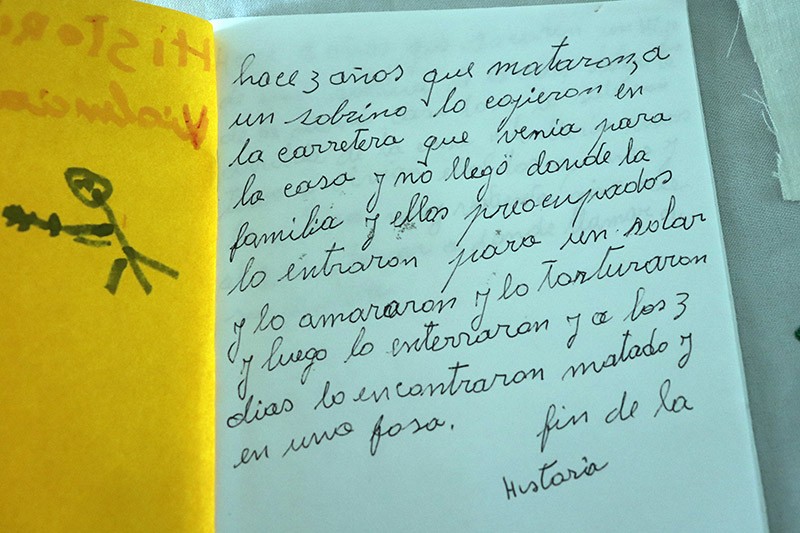 Historia
Violencia
hace 3 años que mataron, a
un sobrino lo cojieron en
la carretera que venia para
la casa y nó llegó donde la
familia y ellos preocupados
lo entraron para un solar
y lo amararon y lo torturaron
y luego lo enterraron y a los 3
dias lo encontraron matado y
en una fosa. fin de la
Historia